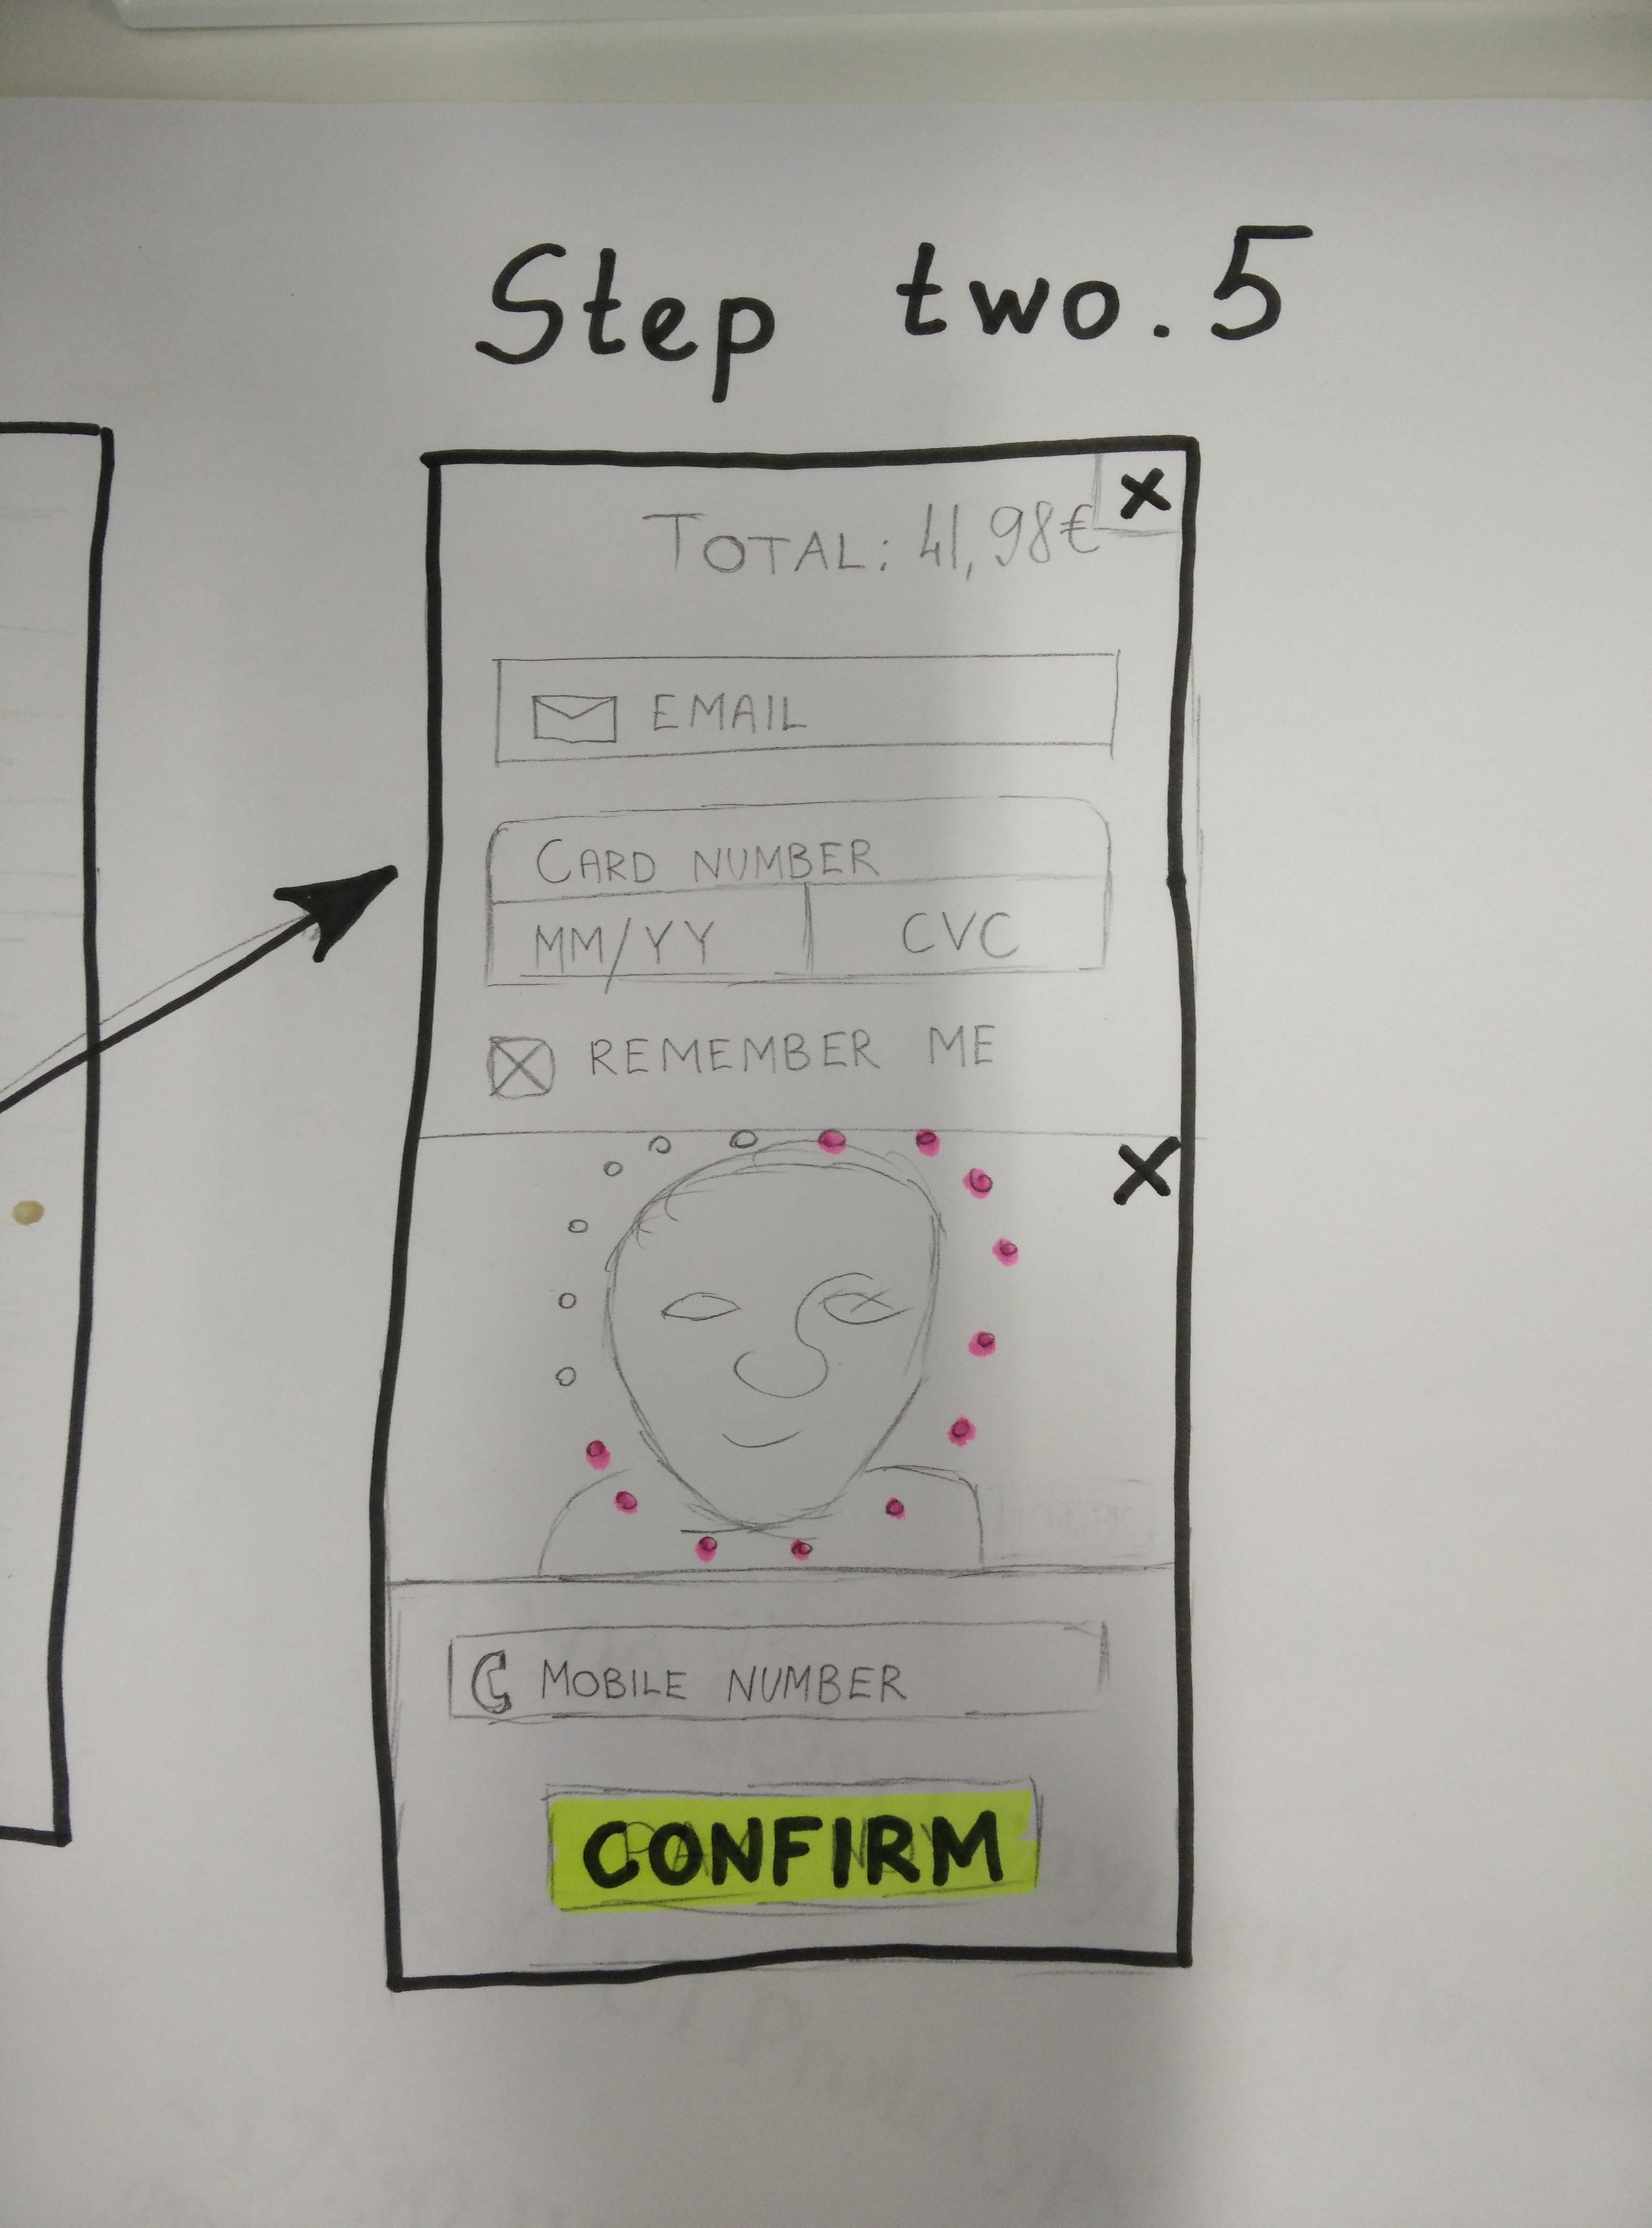 Step two.5
X
TOTAL: 41,98€
EMAIL
CARD NUMBER
MM/YY CVC
REMEMBER ME
X
MOBILE NUMBER
CONFIRM